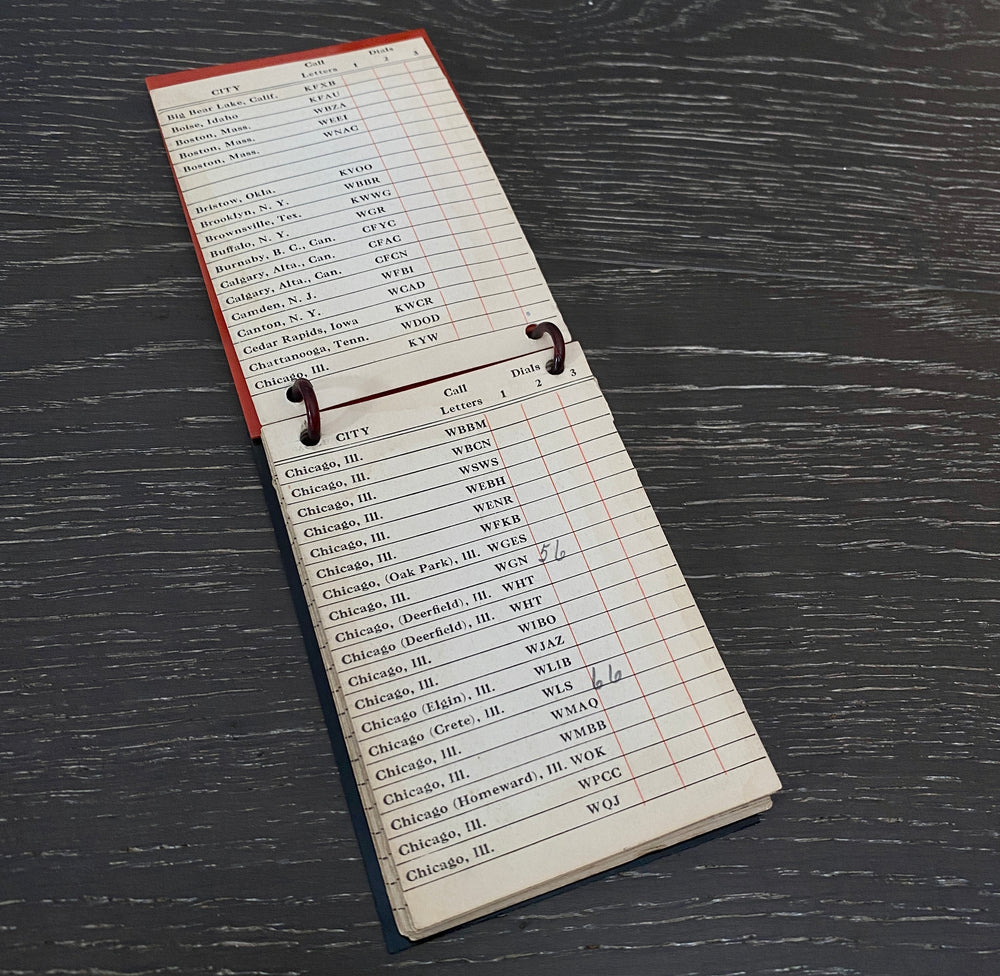 Call Dials
CITY Letters 1 2 3
Big Bear Lake, Calif. KFXB
Boise, Idaho KFAU
Boston, Mass. WBZA
Boston, Mass. WEEI
Boston, Mass. WNAC
Bristow, Okla. KVOO
Brooklyn, N. Y. WBBR
Brownsville, Tex. KWWG
Buffalo, N. Y. WGR
Burnaby, B. C., Can. CFYC
Calgary, Alta., Can. CFAC
Calgary, Alta., Can. CFCN
Camden, N. J. WFBI
Canton, N. Y. WCAD
Cedar Rapids, Iowa KWCR
Chattanooga, Tenn. WDOD
Chicago, Ill. KYW
Call Dials
CITY Letters 1 2 3
Chicago, Ill. WBBM
Chicago, Ill. WBCN
Chicago, Ill. WSWS
Chicago, Ill. WEBH
Chicago, Ill. WENR
Chicago, Ill. WFKB
Chicago, (Oak Park), Ill. WGES
Chicago, Ill. WGN 56
Chicago, (Deerfield), Ill. WHT
Chicago (Deerfield), Ill. WHT
Chicago, Ill. WIBO
Chicago, Ill. WJAZ
Chicago (Elgin), Ill. WLIB
Chicago (Crete), Ill. WLS 66
Chicago, Ill. WMAQ
Chicago, Ill. WMBB
Chicago (Homeward), Ill. WOK
Chicago, Ill. WPCC
Chicago, Ill. WQJ